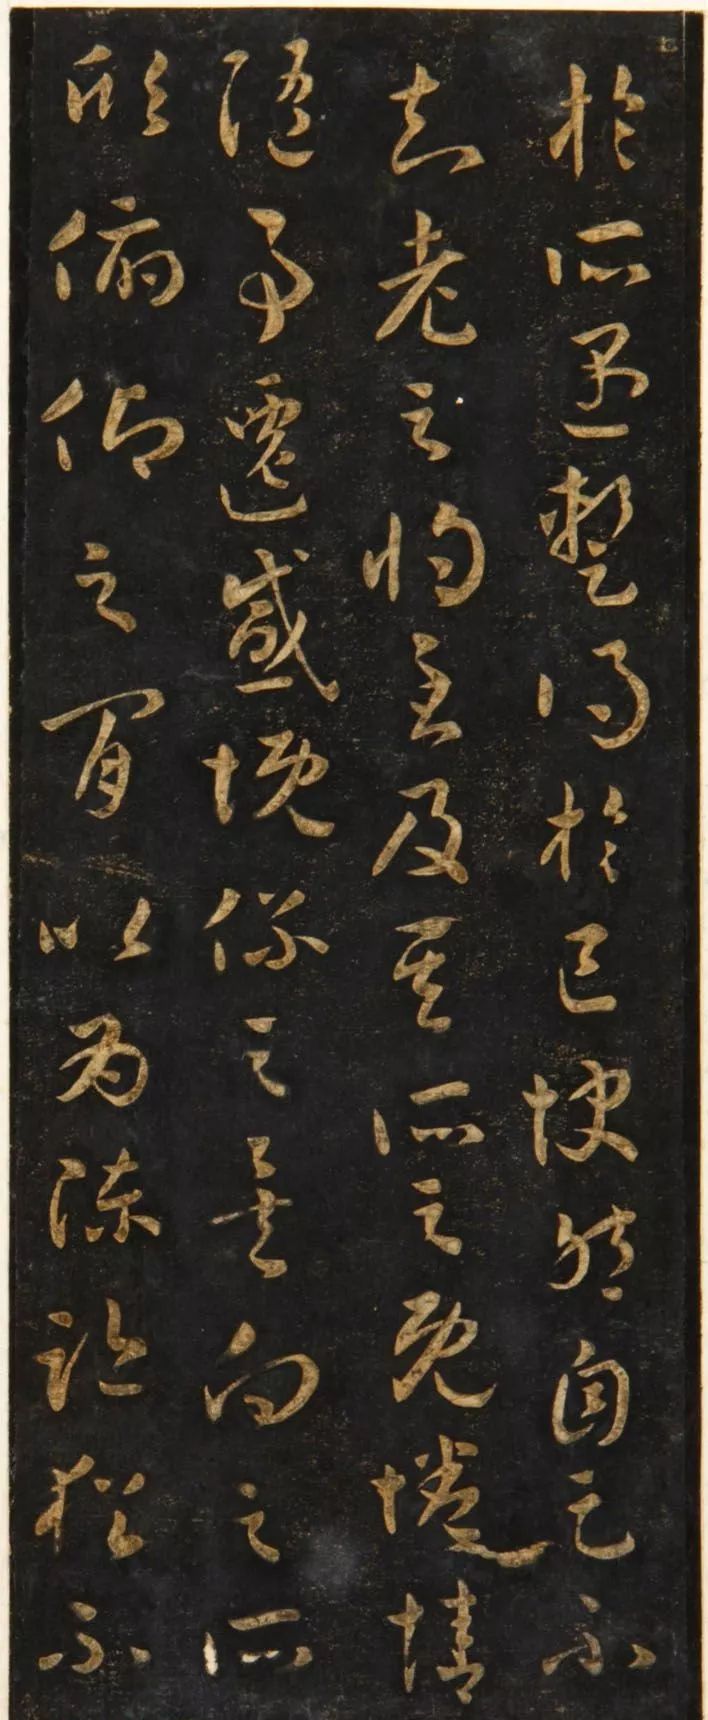 於所遇暫得於己快然自足不
知老之將至及其所之既惓情
隨事遷感慨係之矣向之所
欣俯仰之間以為陳跡猶不